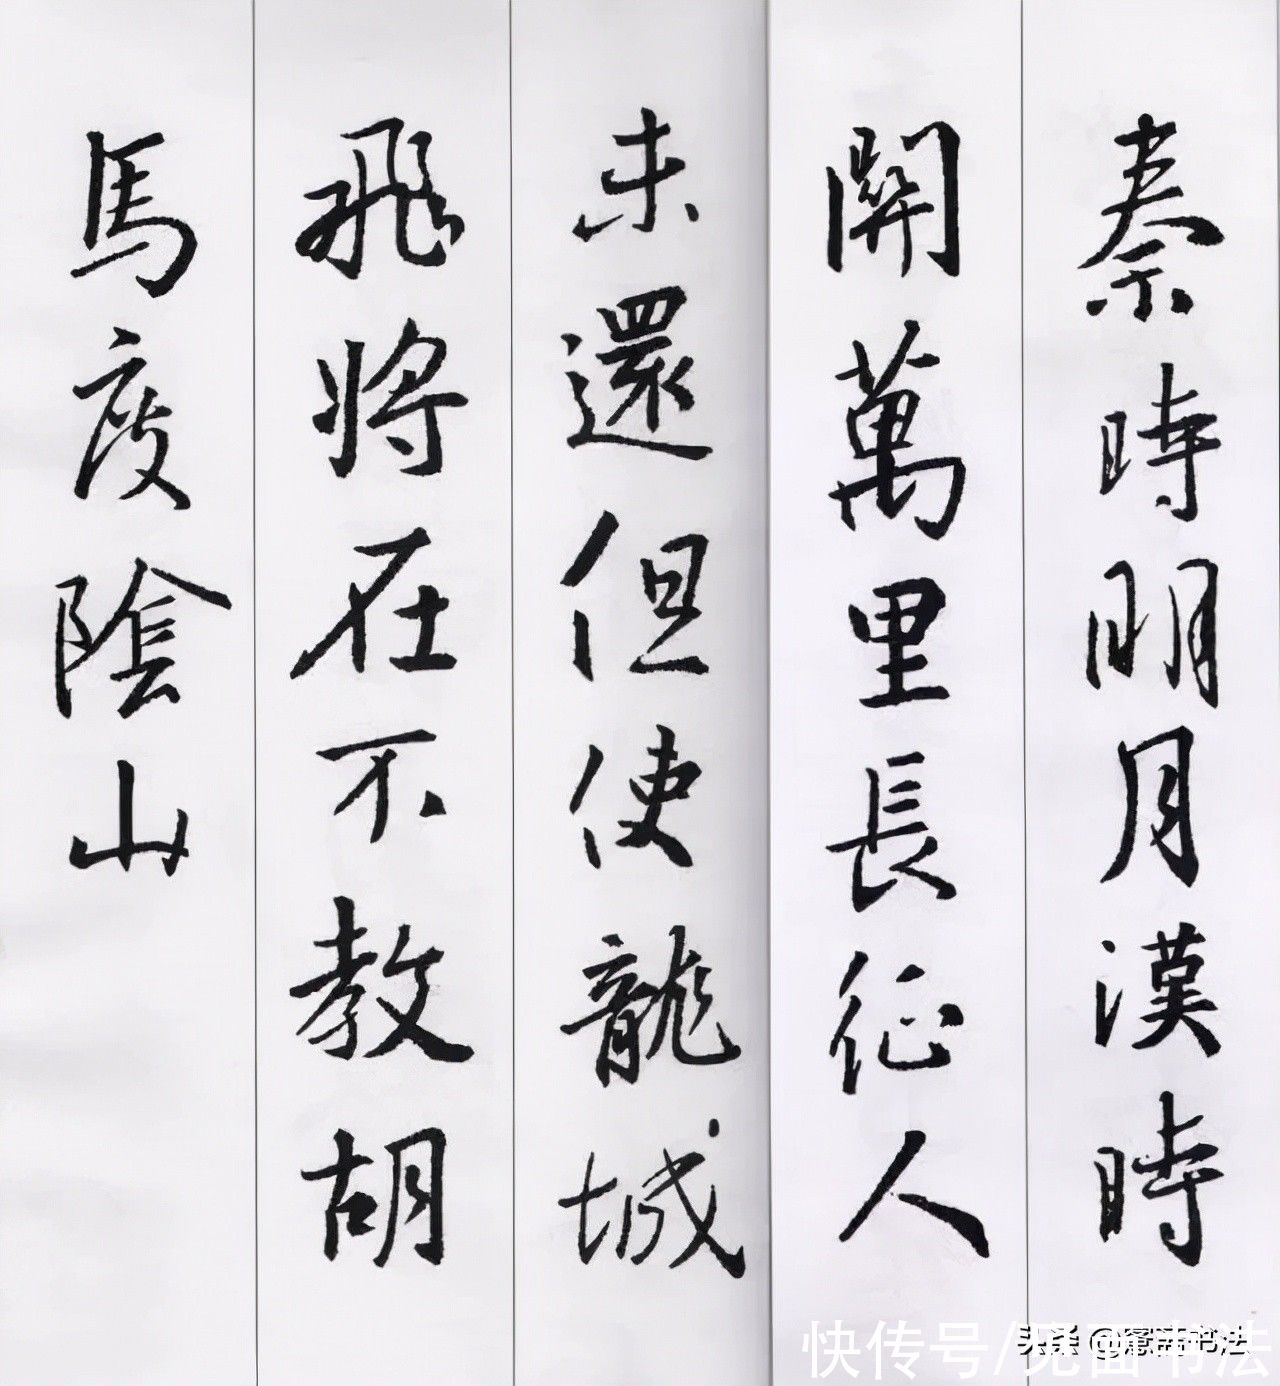 秦時明月漢時
關萬里長征人
未還但使龍城
飛將在不教胡
馬度陰山
快传号/见面书法
头条